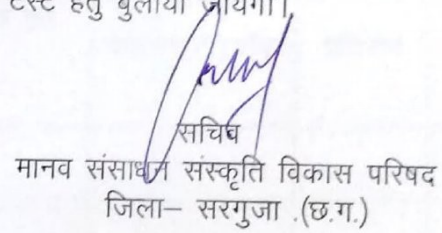 टेस्ट हेतु बुलाया जायेगा।
सचिव
मानव संसाधन संस्कृति विकास परिषद
जिला– सरगुजा .(छ.ग.)